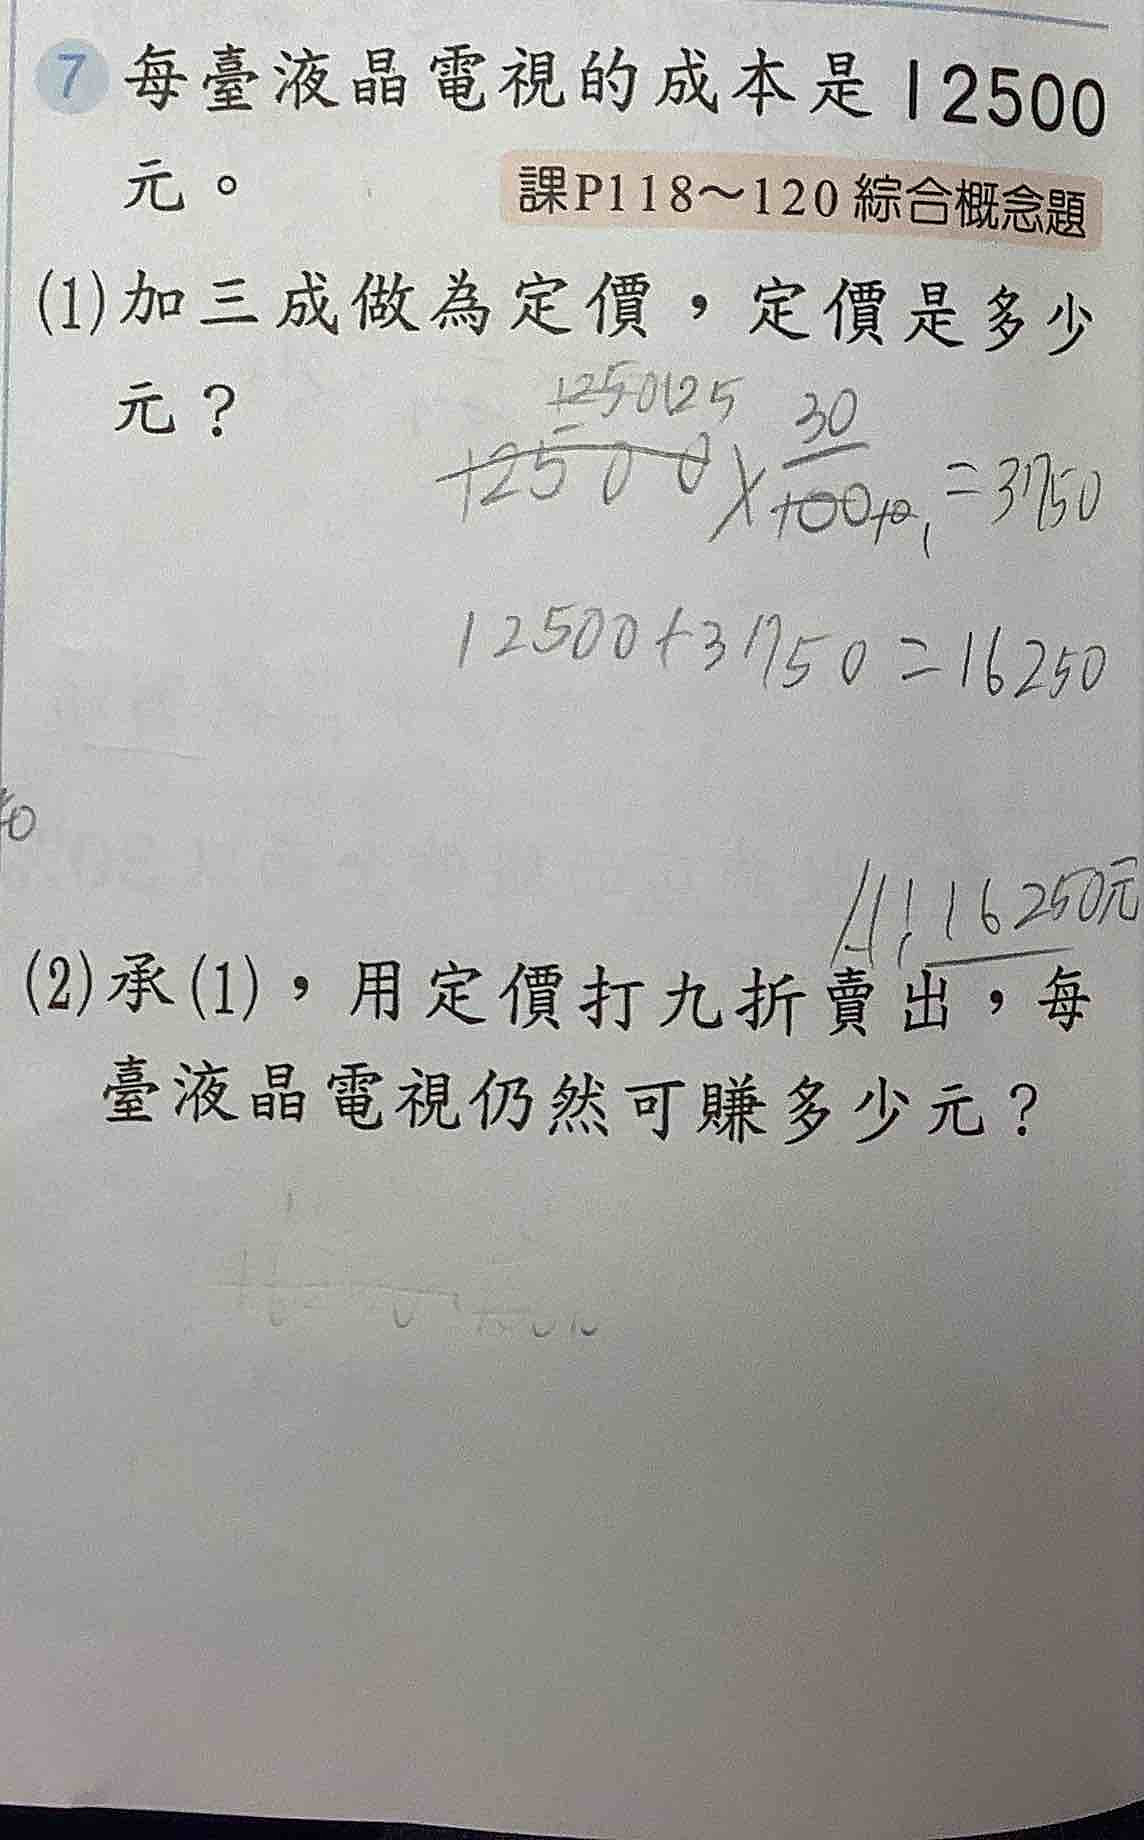 7 每臺液晶電視的成本是12500
元。 課P118～120 綜合概念題
(1)加三成做為定價，定價是多少
元？
125025
12500×30/100 10 1=3750
12500+3750=16250
A:16250元
(2)承(1)，用定價打九折賣出，每
臺液晶電視仍然可賺多少元？